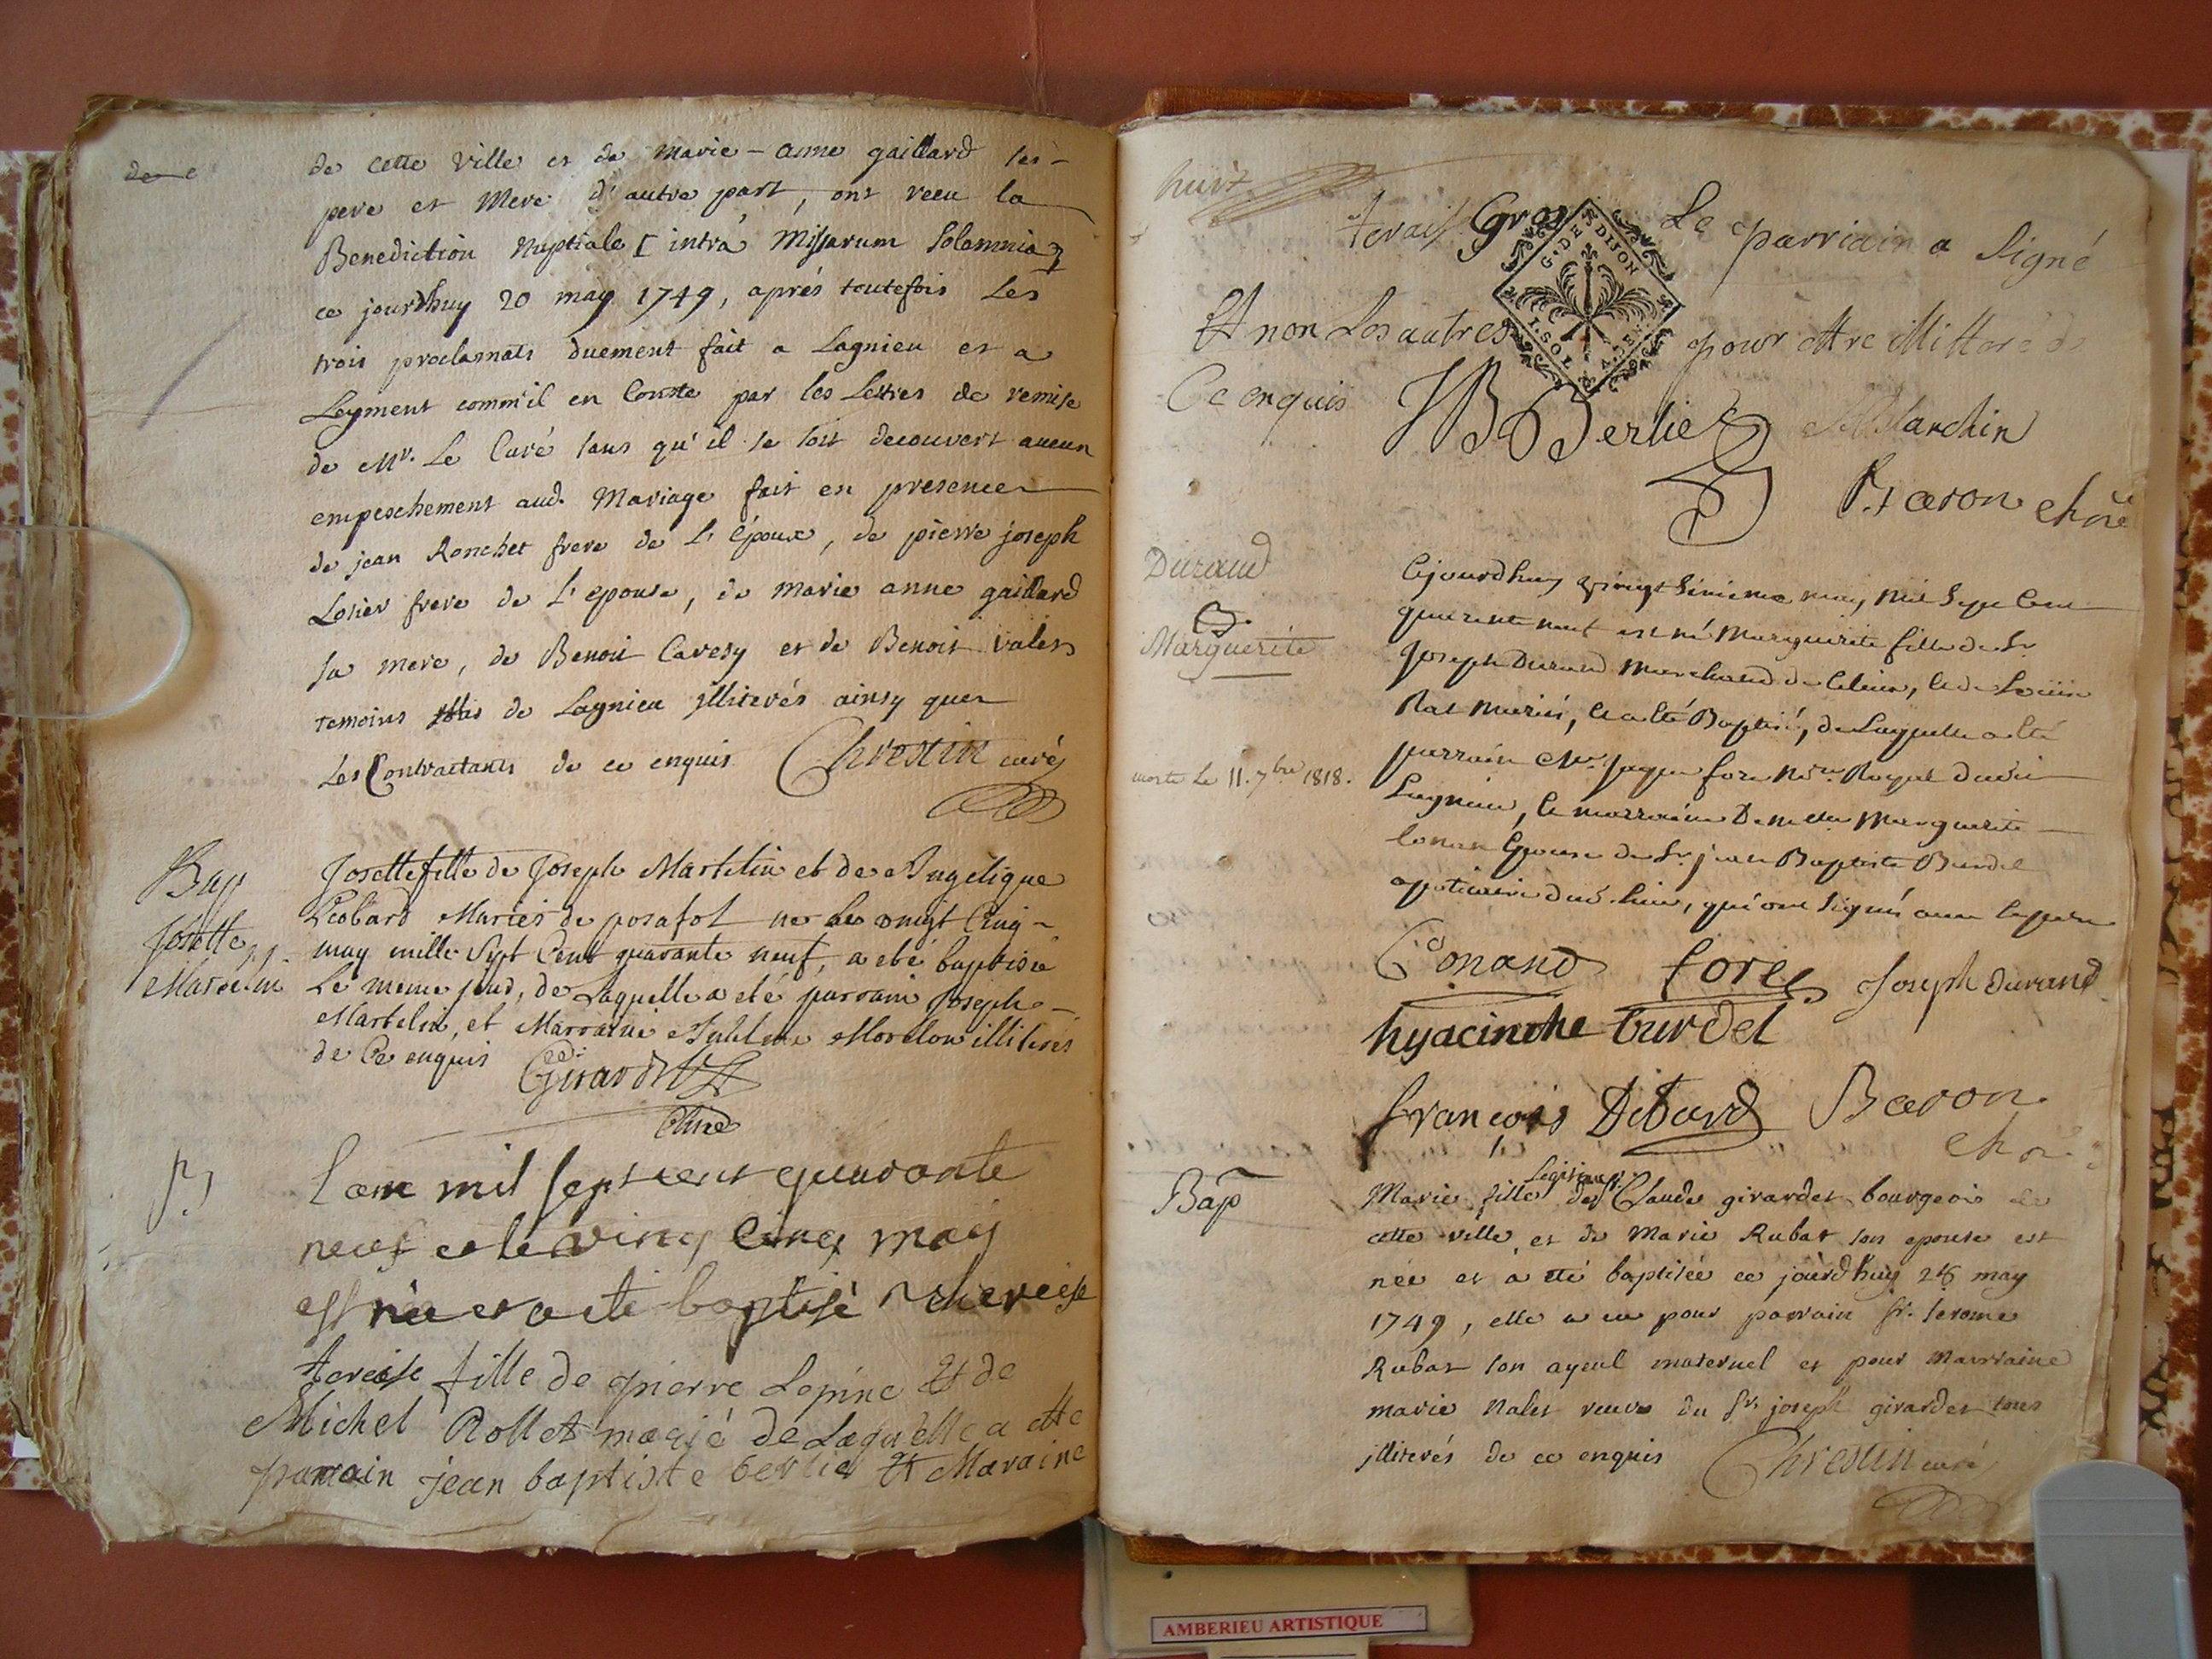 de cette ville et de Marie-Anne gaillard ses
pere et Mere d'autre part, ont receu la
Benediction Nuptiale [intrà Missarum Solemnia]
ce jourdhuy 20 may 1749, aprés toutefois Les
trois proclamats duement fait a Lagnieu et a
Leyment comm'il en Conste par les Lettres de remise
de Mr. Le Curé sans qu'il se soit decouvert aucun
empeschement aud. Mariage fait en presence
de jean Ronchet frere de L'époux, de pierre joseph
Losier frere de L'epouse, de marie anne gaillard
sa mere, de Benoit Cavesy et de Benoit valet
temoins de Lagnieu illiterés ainsy que
Les Contractants de ce enquis Chrestin curé
Bap
Josette
Martelin
Josette fille de Joseph Martelin et de Angelique
Leobard Mariés de posafol né le vingt Cinq
may mille Sept Cent quarante neuf, a eté baptisée
Le meme jour, de Laquelle a eté parrain Joseph
Martelin, et Marraine Morelon illiterés
de Ce enquis Girardet
Lan mil sept cent quarante
neuf et le vingt cinq may
est née et a ete baptisé thereise
tereise fille de pierre Lepine Et de
Michel Rollet marié de Laquelle a ette
parrain jean baptiste berlier Et Maraine
huit
Gros Le parriain a Signé
G. DE DIJON
1. SOL
Et non Les autres pour ettre illitteré de
Ce enquis JB Berlier Blanchin
Baron
Durand
Marguerite
morte Le 11. 7bre 1818.
Cejourdhuy vingt sixieme may mil Sept Cent
quarante neuf est né Marguerite fille de Sr
Joseph Durand Marchand de Celieu, et de Louise
Rat Mariés, et a eté Baptisé, de Laquelle a eté
parrain Mr. Royal dudit
Lagnieu, et marraine Demelle Marguerite
Conan Epouse de Sr. jean Baptiste Burdel
apoticaire dud. lieu, qui ont signés avec le pere
Conand fore Joseph durand
hyacinthe burdel
françois Dibard Baron
Bap
Marie fille Legitime de Sr. Claude girardet bourgeois de
cette ville et de Marie Rubat son epouse est
née et a eté baptisée ce jourdhuy 28 may
1749, elle a eu pour parrain Sr. Jerome
Rubat son ayeul maternel et pour Marraine
marie valet veuve du Sr. joseph girardet tous
illiterés de ce enquis Chrestin curé
AMBERIEU ARTISTIQUE